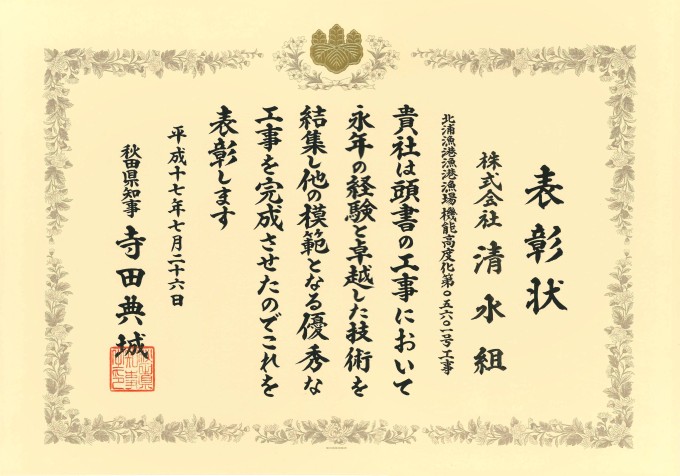 表彰状
株式会社 清水組
北浦漁港漁港漁場機能高度化第〇五六〇一号工事
貴社は頭書の工事において
永年の経験と卓越した技術を
結集し他の模範となる優秀な
工事を完成させたのでこれを
表彰します
平成十七年七月二十六日
秋田県知事 寺田典城